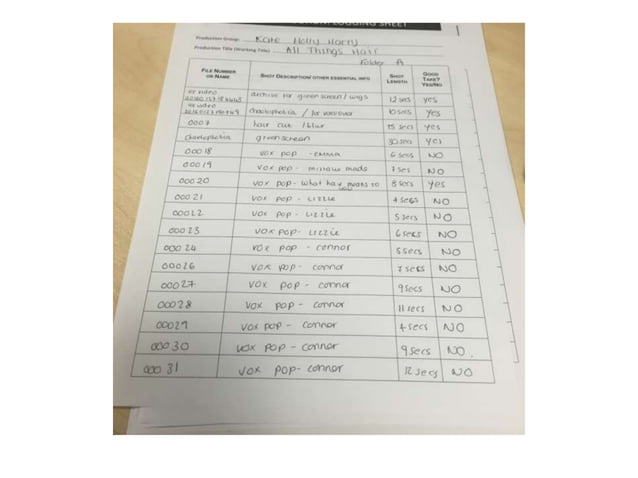 LOGGING SHEET
Production Group: Kate Holly Harry
Production Title (Working Title) All Things Hair
Folder A
FILE NUMBER OR NAME SHOT DESCRIPTION/ OTHER ESSENTIAL INFO SHOT LENGTH GOOD TAKE? YES/NO
video archive for green screen / wigs 12 secs yes
video chaetophobia / for voiceover 10 secs Yes
0007 hair cut / blur 15 secs Yes
chaetophobia green screen 30 secs Yes
00018 vox pop - EMMA 6 secs NO
00019 vox pop - 7 secs NO
00020 vox pop - what hair means to you 8 secs Yes
00021 vox pop - Lizzie 4 secs NO
00022 vox pop - Lizzie 5 secs NO
00023 vox pop - Lizzie 6 secs NO
00024 vox pop - connor 5 secs NO
00026 vox pop - connor 7 secs NO
00027 vox pop - connor 9 secs NO
00028 vox pop - connor 11 secs NO
00029 vox pop - connor 4 secs NO
00030 vox pop - connor 9 secs NO.
00031 vox pop - connor 12 secs NO